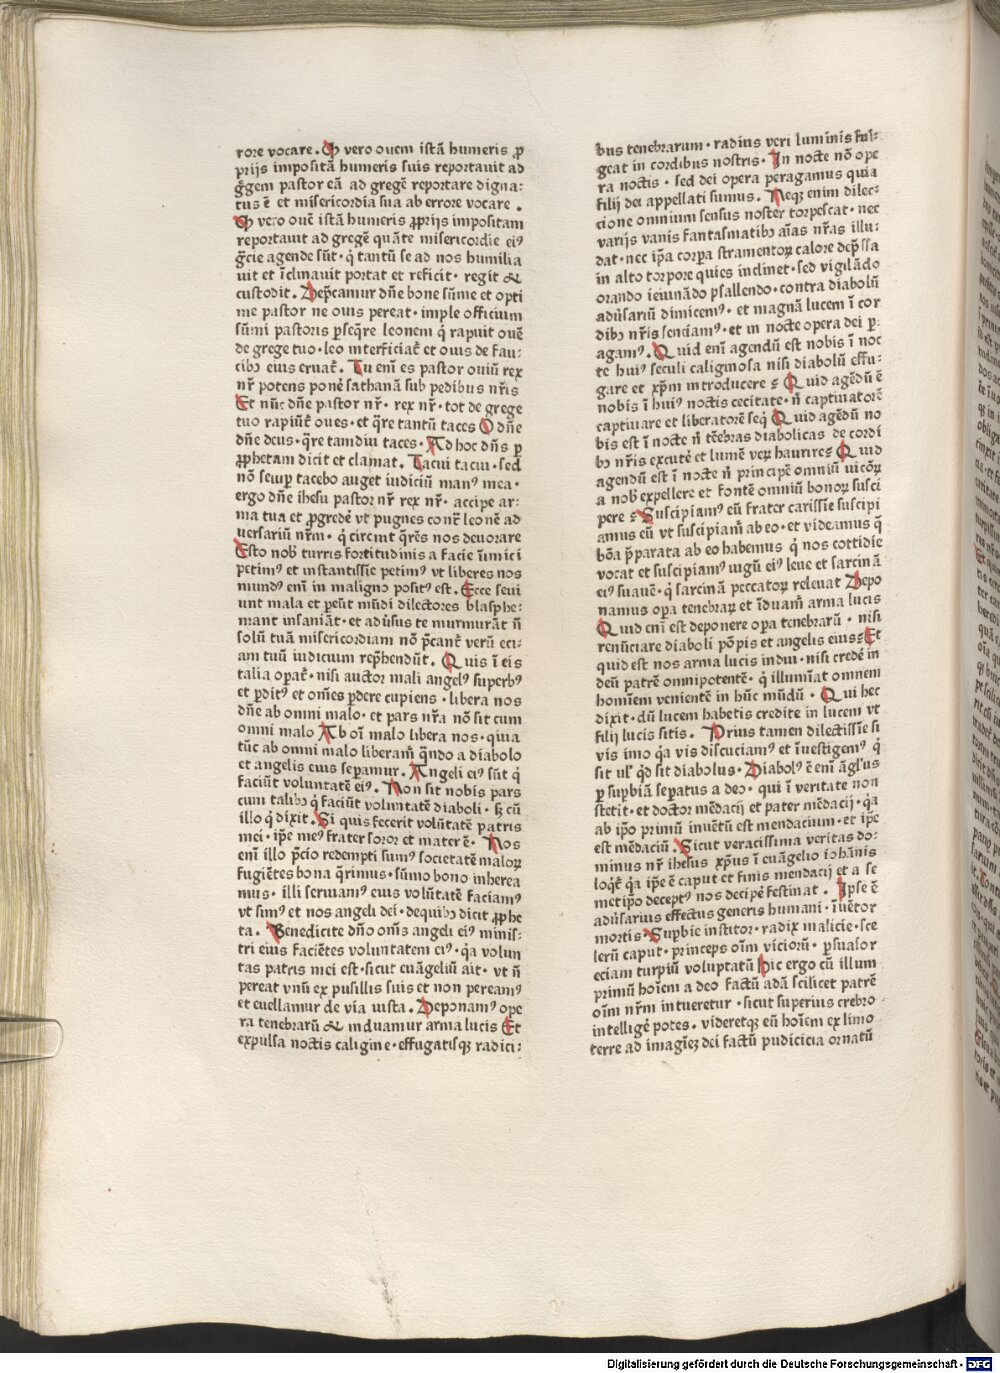 rore vocare. Q vero ouem istā humeris ꝓ
prijs impositā humeris suis reportauit ad
gͤgem pastor eā ad gregē reportare digna⸗
tus ē et misericordia sua ab errore vocare .
Q vero ouē istā humeris ꝓprijs impositam
reportauit ad gregē quāte misericordie eiꝰ
gͣcie agende sūt · qͥ tantū se ad nos humilia
uit et īclinauit portat et reficit · regit &
custodit . Dep̄camur dn̄e bone sūme et opti
me pastor ne ouis pereat · imple officium
sūmi pastoris ꝑseq̄re leonem qͥ rapuit ouē
de grege tuo · leo interficiat̄ et ouis de fau⸗
cibꝫ eius eruat̄ . Tu em̄ es pastor ouiū rex
nr̄ potens ponē sathanā sub pedibus nr̄is
Et nūc dn̄e pastor nr̄ · rex nr̄ · tot de grege
tuo rapiūt̄ oues · et q̄re tantū taces O dn̄e
dn̄e deus · q̄re tamdiu taces . Ad hoc dn̄s ꝑ
ꝓphetam dicit et clamat . Tacui tacui · sed
nō semꝑ tacebo auget iudiciū manꝰ mea ·
ergo dn̄e ihesu pastor nr̄ rex nr̄ · accipe ar⸗
ma tua et ꝓgredē vt pugnes contͣ leonē ad
uersariū nr̄m · qͥ circuit q̄rēs nos deuorare
Esto nob̄ turris fortitudinis a facie īimici
petimꝰ et instantissīe petimꝰ vt liberes nos
mundꝰ em̄ in maligno positꝰ est . Ecce seui
unt mala et pereūt mūdi dilectores blasphe⸗
mant insaniāt · et adūsus te murmurāt n̄
solū tuā misericordiam nō p̄cant̄ verū eci⸗
am tuū iudicium rep̄hendūt . Quis ī eis
talia oꝑat̄ · nisi auctor mali angelꝰ superbꝰ
et ꝑditꝰ et om̄es ꝑdere cupiens · libera nos
dn̄e ab omni malo · et pars nr̄a nō sit cum
omni malo Ab oī malo libera nos · quia
tūc ab omni malo liberam̄ qn̄do a diabolo
et angelis eius seꝑamur . Angeli eiꝰ sūt qͥ
faciūt voluntatē eiꝰ . Non sit nobis pars
cum talibꝫ qͥ faciūt voluntatē diaboli · sꝫ cū
illo qͥ dixit . Si quis fecerit volūtatē patris
mei · ip̄e meꝰ frater soror et mater ē . Nos
em̄ illo p̄cio redempti sumꝰ societatē maloꝝ
fugiētes bona q̄rimus · sūmo bono inherea
mus · illi seruiamꝰ eius volūtatē faciamꝰ
vt simꝰ et nos angeli dei · de quibꝫ dicit ꝓphe
ta . Benedicite dn̄o om̄s angeli eiꝰ minis⸗
tri eius faciētes voluntatem eiꝰ · qͣ volun
tas patris mei est · sicut euāgeliū ait · vt n̄
pereat vnū ex pusillis suis et non peream̄ꝰ
et euellamur de via iusta . Deponamꝰ ope
ra tenebrarū & induamur arma lucis Et
expulsa noctis caligine · effugatisqꝫ radici⸗
bus tenebrarum · radius veri luminis ful⸗
geat in cordibus nostris · In nocte nō ope
ra noctis · sed dei opera peragamus quia
filij dei appellati sumus . Neqꝫ enim dilec⸗
cione omnium sensus noster torpescat · nec
varijs vanis fantasmatibꝫ aīas nr̄as illu⸗
dat · nec ip̄a corꝑa stramentoꝝ calore dep̄ssa
in alto torpore quies inclinet · sed vigilādo
orando ieiunādo psallendo · contra diabolū
adūsariū dimicemꝰ · et magnā lucem ī cor
dibꝫ nr̄is senciamꝰ · et in nocte opera dei ꝑ⸗
agamꝰ . Quid em̄ agendū est nobis ī noc
te huiꝰ seculi caliginosa nisi diabolū effu⸗
gare et xp̄m introducere ꝫ Quid agēdū ē
nobis ī huiꝰ noctis cecitate · n̄ captiuatorē
captiuare et liberatorē seqͥ Quid agēdū no
bis est ī nocte n̄ tēbras diabolicas de cordi
bꝫ nr̄is excutē et lumē veꝝ haurire ꝫ Quid
agendū est ī nocte n̄ principē omniū vicioꝝ
a nob̄ expellere et fontē omniū bonoꝝ susci
pere ꝫ Suscipiamꝰ eū frater carissīe suscipi
amus eū vt suscipiam̄ ab eo · et videamus q̄
bōa p̄parata ab eo habemus qͥ nos cottidie
vocat et suscipiamꝰ iugū eiꝰ leue et sarcinā
eiꝰ suauē · qͥ sarcinā peccatoꝝ releuat Depo
namus oꝑa tenebraꝝ et īduam̄ arma lucis
Quid em̄ est deponere oꝑa tenebrarū · nisi
renūciare diaboli pōpis et angelis eius ꝫ Et
quid est nos arma lucis indui · nisi credē in
deū patrē omnipotentē · qͥ illumīat omnem
homīem venientē in hūc mūdū . Qui hec
dixit · dū lucem habetis credite in lucem vt
filij lucis sitis . Prius tamen dilectissīe si
vis imo qͣ vis discuciamꝰ et īuestigemꝰ qͥ
sit ul̄ qͥd sit diabolus · Diabolꝰ ē em̄ āgl̄us
ꝑ suꝑbiā seꝑatus a deo · qui ī veritate non
stetit · et doctor mēdacij et pater mēdacij · qͣ
ab ip̄o primū inuētū est mendacium · et ip̄e
est mēdaciū . Sicut veracissima veritas do⸗
minus nr̄ ihesus xp̄us ī euāgelio iohānis
loqͥt̄ qͣ ip̄e ē caput et finis mendacij et a se
metip̄o deceptꝰ nos decipē festinat . Ipse ē
adūsarius effectus generis humani · īuētor
mortis · Suꝑbie institor · radix malicie · sce
lerū caput · princeps oīm vicioꝝ · ꝑsuasor
eciam turpiū voluptatū Hic ergo cū illum
primū hoīem a deo factū adā scilicet patrē
oīm nr̄m intueretur · sicut superius crebro ·
intelligē potes · videretqꝫ eū hoīem ex limo
terre ad imagīeꝫ dei factū pudicicia ornatū
Digitalisierung gefördert durch die Deutsche Forschungsgemeinschaft · DFG